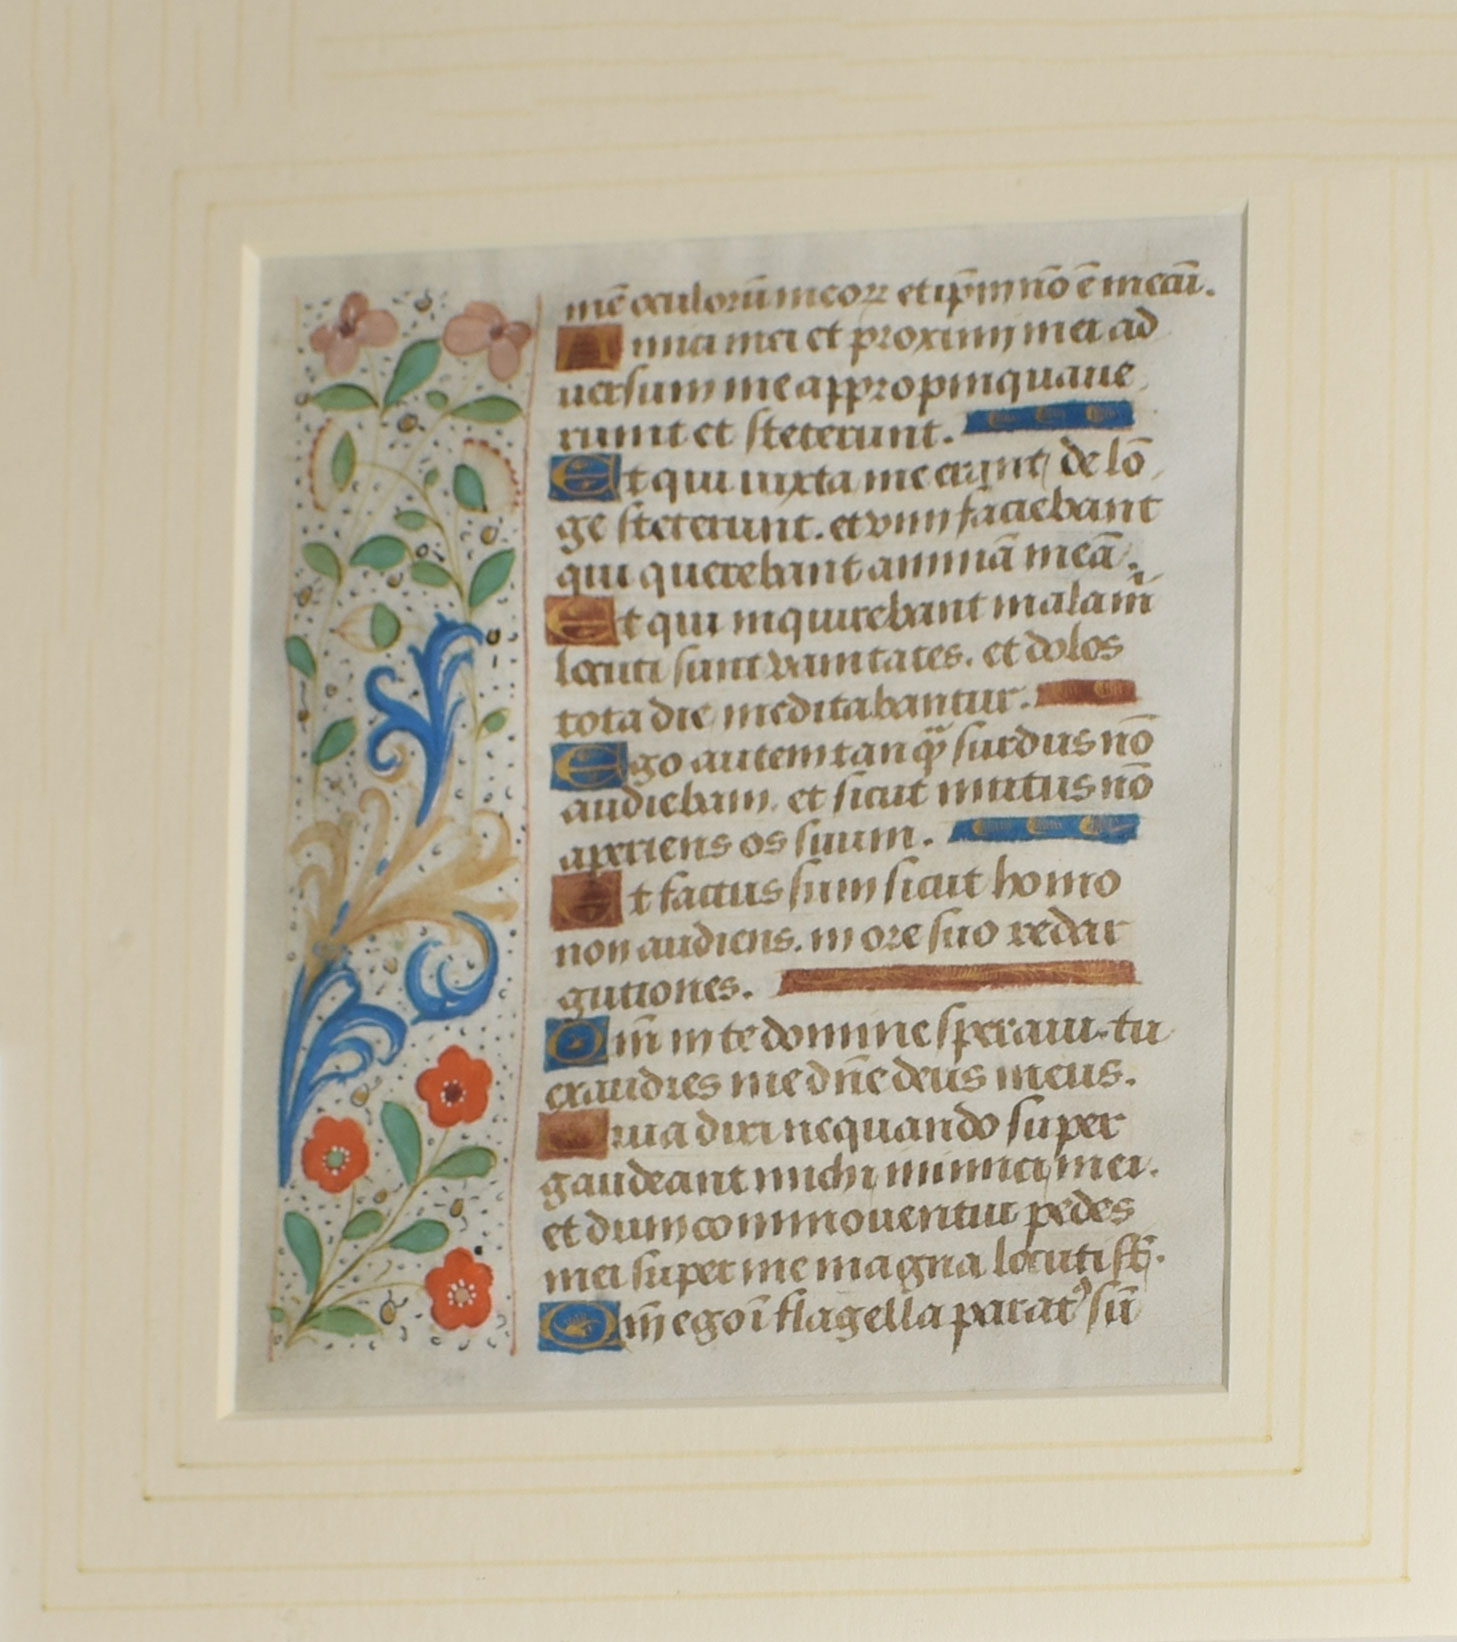 mē oculorū meoꝝ et ip̄m nō ē mecū.
Amici mei et proximi mei ad
uersum me appropinquaue
runt et steterunt.
Et qui iuxta me erant de lō
ge steterunt. et vim faciebant
qui querebant animā meā.
Et qui inquirebant mala m̄
locuti sunt vanitates. et dolos
tota die meditabantur.
Ego autem tanq̄ surdus nō
audiebam. et sicut mutus nō
aperiens os suum.
Et factus sum sicut homo
non audiens. in ore suo redar
gutiones.
Qm̄ in te domine speraui. tu
exaudies me dn̄e deus meus.
Quia dixi nequando super
gaudeant michi inimici mei.
et dum commouentur pedes
mei super me magna locuti st̄.
Qm̄ ego ī flagella paratꝰ sū